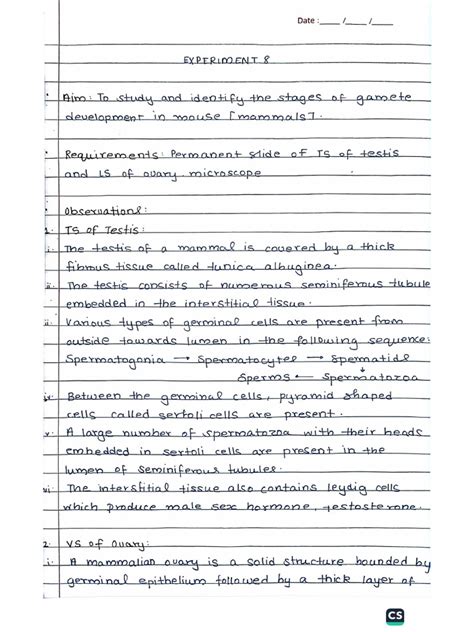 Date :____ /____ /____
EXPERIMENT 8
• Aim: To study and identify the stages of gamete
development in mouse [mammals].
• Requirements: Permanent slide of TS of testis
and LS of ovary, microscope
• Observations:
1. TS of Testis:
i. The testis of a mammal is covered by a thick
fibrous tissue called tunica albuginea.
ii. The testis consists of numerous seminiferous tubule
embedded in the interstitial tissue.
iii. Various types of germinal cells are present from
outside towards lumen in the following sequence:
Spermatogonia → Spermatocytes → Spermatids
↓
Sperms ← Spermatozoa
iv. Between the germinal cells, pyramid shaped
cells called sertoli cells are present.
v. A large number of spermatozoa with their heads
embedded in sertoli cells are present in the
lumen of seminiferous tubules.
vi. The interstitial tissue also contains leydig cells
which produce male sex hormone, testosterone.
2. VS of Ovary:
i. A mammalian ovary is a solid structure bounded by
germinal epithelium followed by a thick layer of
CS